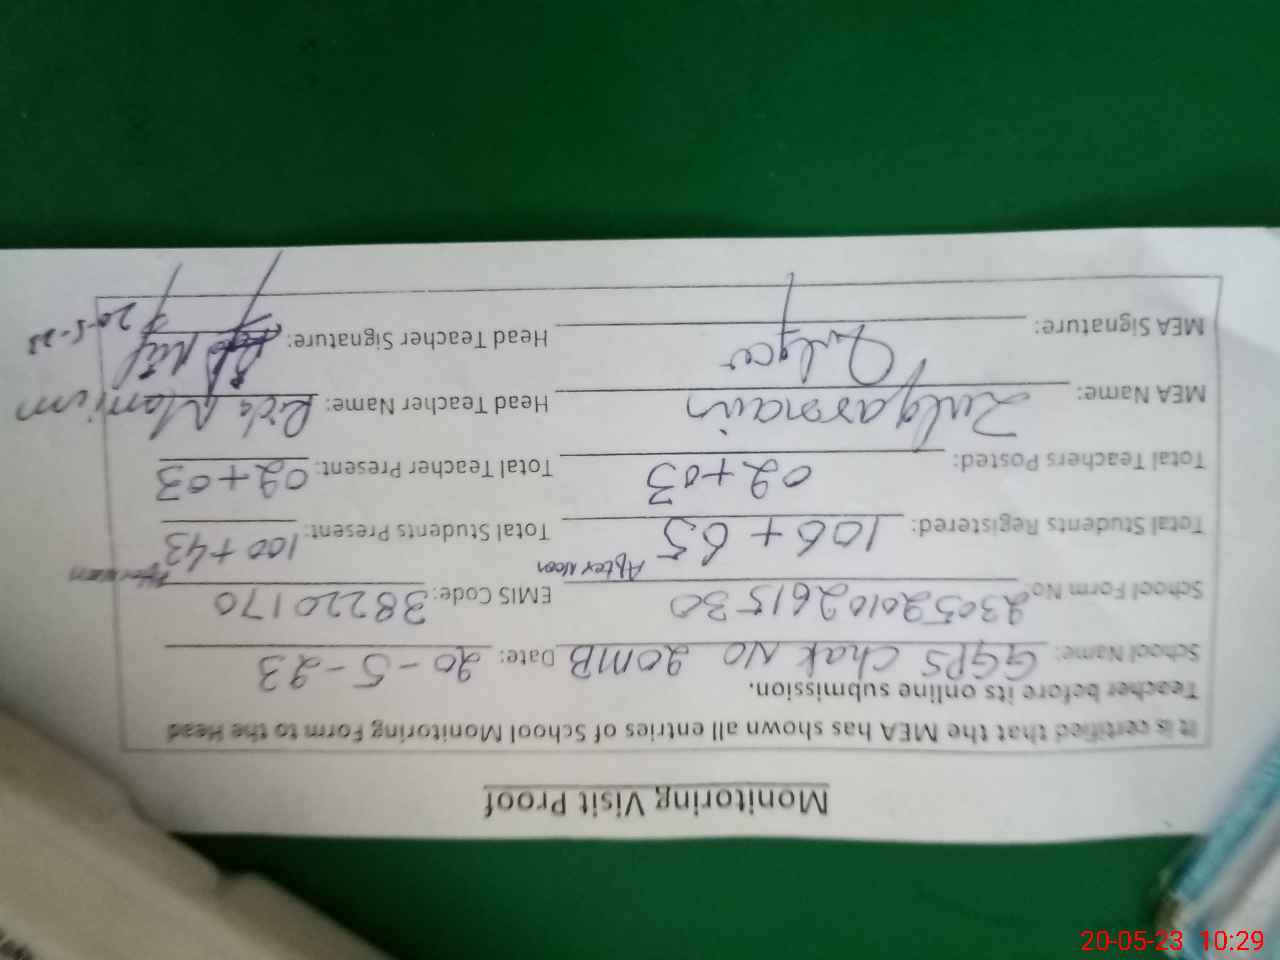 Monitoring Visit Proof
It is certified that the MEA has shown all entries of School Monitoring Form to the Head
Teacher before its online submission.
School Name: GGPS Chak No 20MB Date: 20-5-23
School Form No: 23052010261530 EMIS Code: 38220170
After Noon After Noon
Total Students Registered: 106+65 Total Students Present: 100+43
Total Teachers Posted: 02+03 Total Teacher Present: 02+03
MEA Name: Zulqarnain Head Teacher Name: Rida
MEA Signature: Head Teacher Signature:
20-5-23
20-05-23 10:29